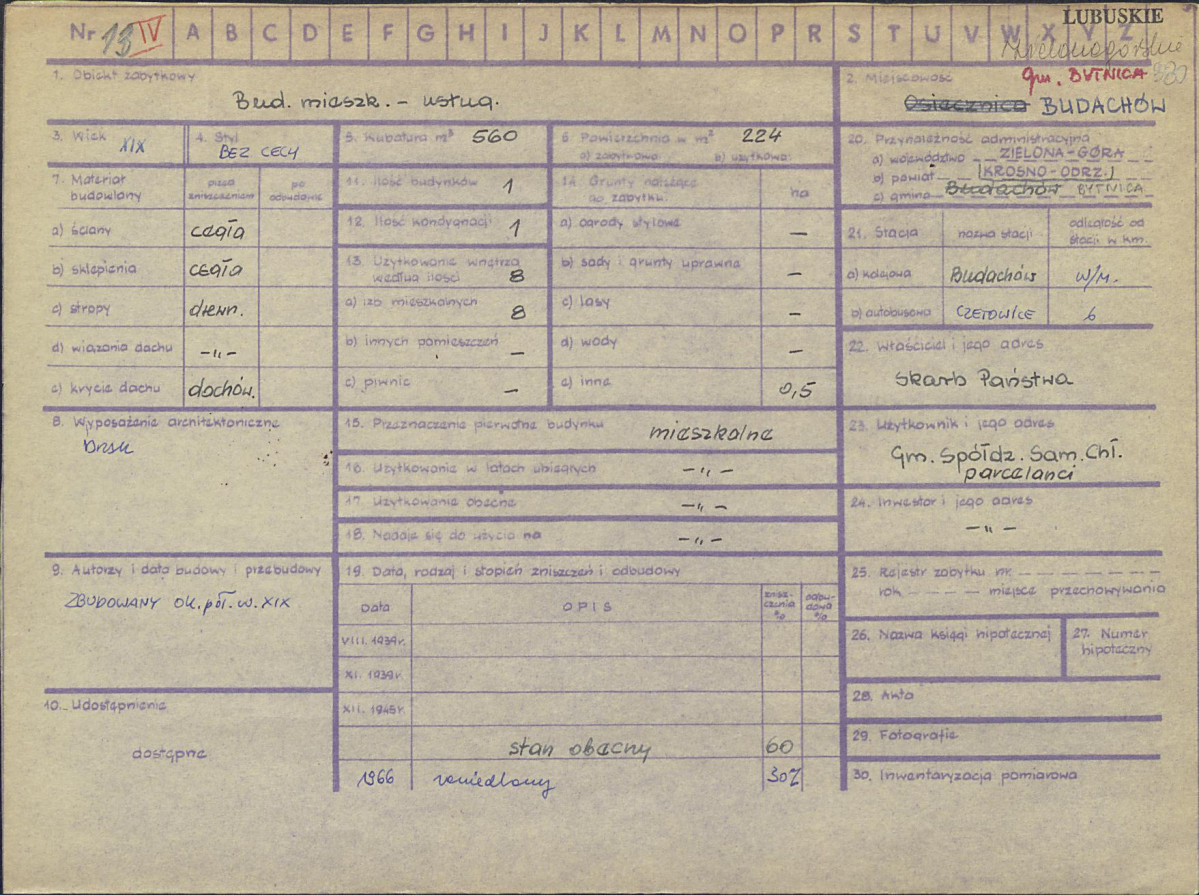 Nr 13 IV A B C D E F G H I J K L M N O P R S T U V W X Y Z
LUBUSKIE
Zielonogórskie
1. Obiekt zabytkowy
Bud. mieszk. - usług.
2. Miejscowość
gm. BYTNICA
Osiecznica BUDACHÓW
3. Wiek
XIX
4. Styl
BEZ CECH
5. Kubatura m³ 560
6 Powierzchnia w m² 224
a) zabytkowa b) użytkowa
20. Przynależność administracyjna
a) województwo ZIELONA-GÓRA
b) powiat KROSNO-ODRZ.
c) gmina Budachów BYTNICA
7. Materiał budowlany
przed zniszczeniem
po odbudowie
a) ściany cegła
b) sklepienia cegła
c) stropy drewn.
d) wiązania dachu -„-
e) krycie dachu dachów.
11. Ilość budynków 1
12. Ilość kondygnacji 1
13. Użytkowanie wnętrza według ilości 8
a) izb mieszkalnych 8
b) innych pomieszczeń —
c) piwnic —
14. Grunty należące do zabytku: ha
a) ogrody stylowe —
b) sady i grunty uprawne —
c) lasy —
d) wody —
e) inne 0,5
21. Stacja nazwa stacji odległość od stacji w km.
a) kolejowa Budachów w/m.
b) autobusowa CZETOWICE 6
22. Właściciel i jego adres
Skarb Państwa
8. Wyposażenie architektoniczne
Brak
15. Przeznaczenie pierwotne budynku mieszkalne
16. Użytkowanie w latach ubiegłych -„-
17. Użytkowanie obecne -„-
18. Nadaje się do użycia na -„-
23. Użytkownik i jego adres
Gm. Spółdz. Sam. Chł.
parcelanci
24. Inwestor i jego adres
-„-
9. Autorzy i data budowy i przebudowy
ZBUDOWANY ok. poł. w. XIX
19. Data, rodzaj i stopień zniszczeń i odbudowy
Data OPIS zniszczenia % odbudowa %
VIII. 1939r.
XI. 1939r.
XII. 1945r.
stan obecny 60
1966 zaniedbany 30%
25. Rejestr zabytku nr.
rok miejsce przechowywania
26. Nazwa księgi hipotecznej
27. Numer hipoteczny
28. Akta
29. Fotografie
30. Inwentaryzacja pomiarowa
10. Udostępnienie
dostępne